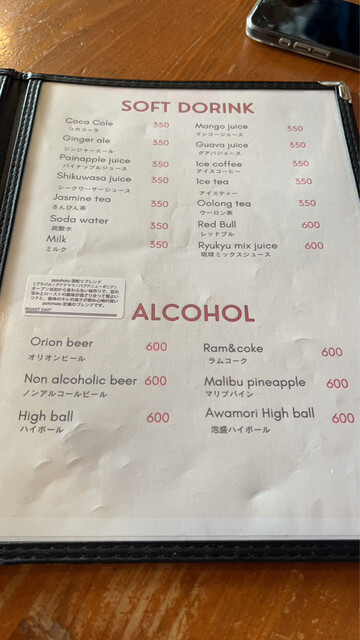 SOFT DORINK
Coca Cole 350
コカコーラ
Ginger ale 350
ジンジャーエール
Painapple juice 350
パイナップルジュース
Shikuwasa juice 350
シークワーサージュース
Jasmine tea 350
さんぴん茶
Soda water 350
炭酸水
Milk 350
ミルク
Mango juice 350
マンゴージュース
Guava juice 350
グアバジュース
Ice coffee 350
アイスコーヒー
Ice tea 350
アイスティー
Oolong tea 350
ウーロン茶
Red Bull 600
レッドブル
Ryukyu mix juice 600
琉球ミックスジュース
ROAST DAY
ALCOHOL
Orion beer 600
オリオンビール
Non alcoholic beer 600
ノンアルコールビール
High ball 600
ハイボール
Ram&coke 600
ラムコーク
Malibu pineapple 600
マリブパイン
Awamori High ball 600
泡盛ハイボール